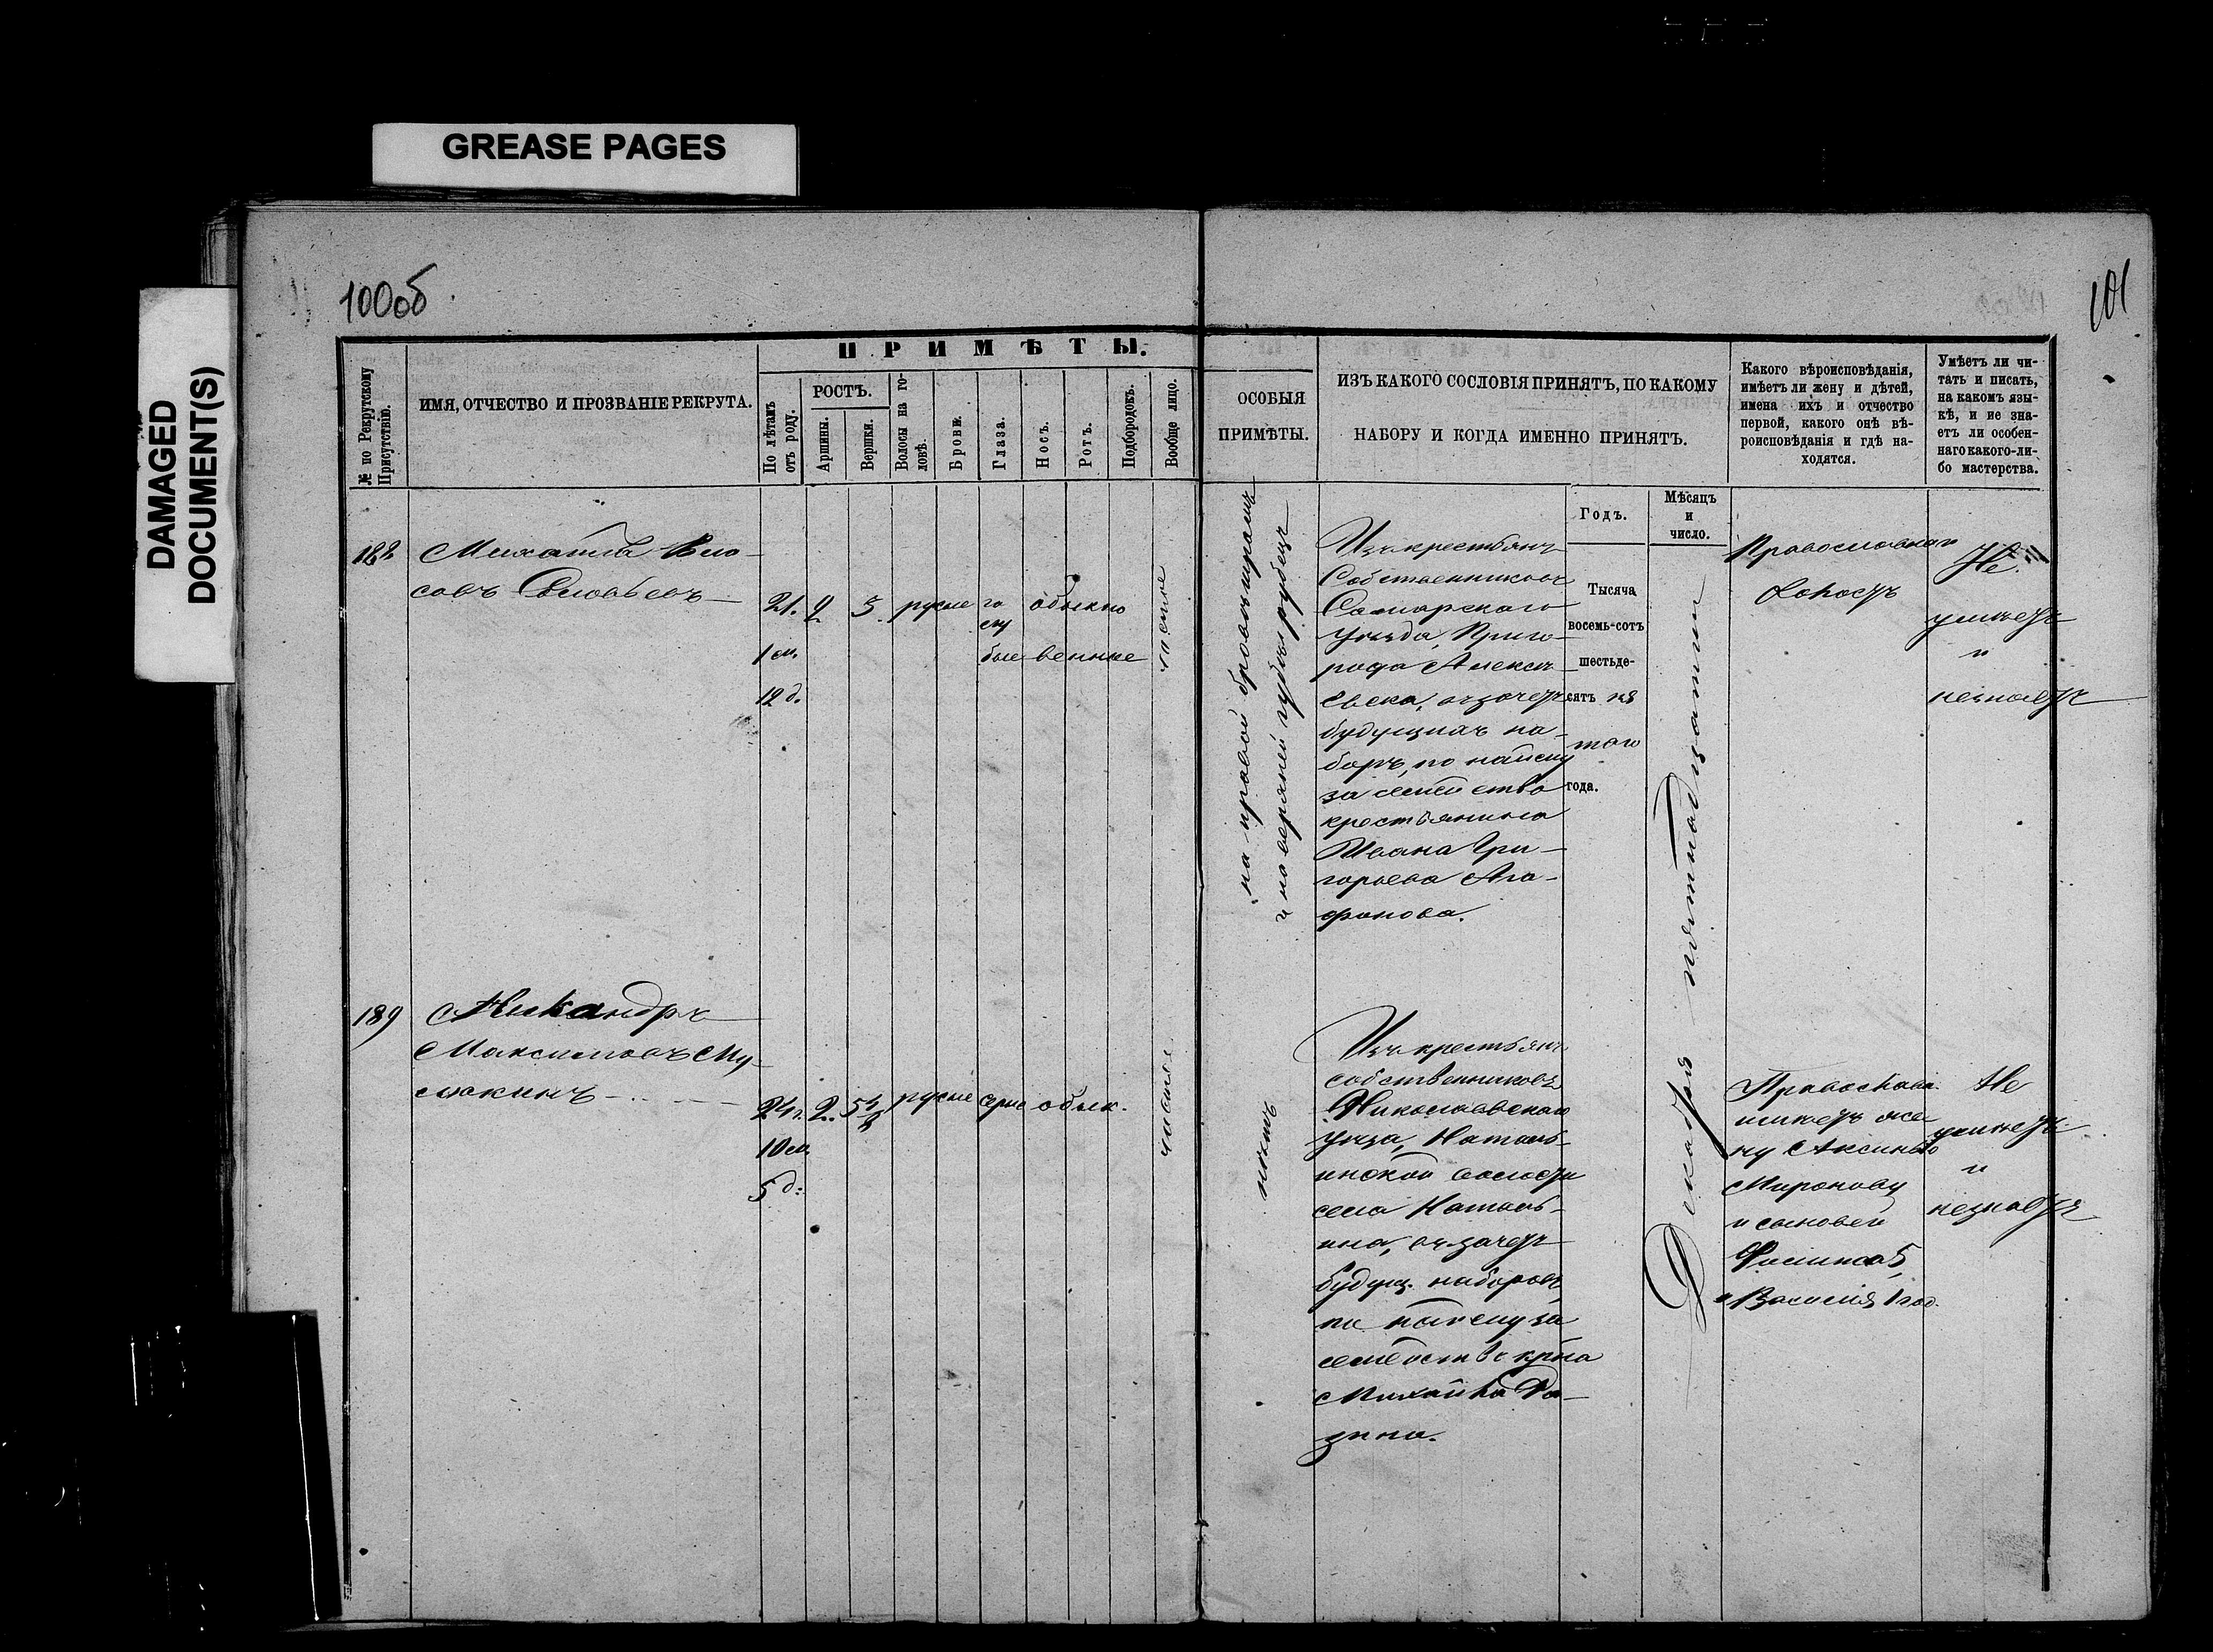 GREASE PAGES
DAMAGED
DOCUMENT(S)
100об
101
№ по Рекрутскому
Присутствію.
ИМЯ, ОТЧЕСТВО И ПРОЗВАНІЕ РЕКРУТА.
ПРИМѢТЫ.
По лѣтамъ
отъ роду.
РОСТЪ.
Аршины.
Вершки.
Волосы на го-
ловѣ.
Брови.
Глаза.
Носъ.
Ротъ.
Подбородокъ.
Вообще лицо.
ОСОБЫЯ
ПРИМѢТЫ.
ИЗЪ КАКОГО СОСЛОВІЯ ПРИНЯТЪ, ПО КАКОМУ
НАБОРУ И КОГДА ИМЕННО ПРИНЯТЪ.
Годъ.
Мѣсяцъ
и
число.
Какого вѣроисповѣданія,
имѣетъ ли жену и дѣтей,
имена ихъ и отчество
первой, какого онѣ вѣ-
роисповѣданія и гдѣ на-
ходятся.
Умѣетъ ли чи-
тать и писать,
на какомъ язы-
кѣ, и не зна-
етъ ли особен-
наго какого-ли-
бо мастерства.
188
Михаилъ Вла-
совъ
21. 2 5 русые го
лу
бые
обыкно
венные
чистое
1 м.
12 д.
на правой брови шрамъ
и на верхней губѣ рубецъ
Изъ крестьянъ
Собственниковъ
Самарскаго
уѣзда, Приго-
рода Алексѣ-
евска, въ зачетъ
будущихъ на-
боръ, по найму
за семейство
крестьянина
Ивана Гри-
горьева Ага-
фонова.
Тысяча
восемь-сотъ
шестьде-
сятъ пя
таго
года.
Декабря пятнадцатаго
Православнаго
Холостъ
Не
умѣетъ
и
незнаетъ
189
Никандръ
Максимовъ
24 г. 2. русые серые обык.
чистое
10 м.
5 д.
нѣтъ
Изъ крестьянъ
собственниковъ
Николаевскаго
уѣзда, Наталь-
инской волости
села Наталь-
ина, въ зачетъ
будущ. наборовъ
по найму за
семейство кр-на
Михаила
Православ.
имѣетъ же
ну Аксинью
Миронову
и сыновей
Филиппа 5,
и Василія 1 год.
Не
умѣетъ
и
незнаетъ